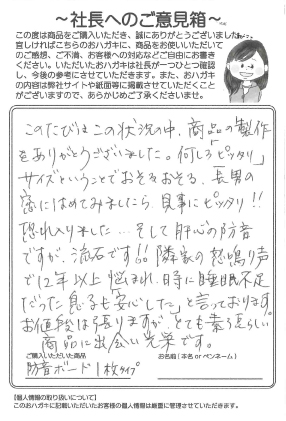 ～社長へのご意見箱～
この度は商品をご購入いただき、誠にありがとうございました。
宜しければこちらのおハガキに、商品をお使いいただいて
のご感想、ご不満、お客様への対応などご自由にお書き
ください。いただいたおハガキは社長が一つひとつ確認
し、今後の参考にさせていただきます。また、おハガキ
の内容は弊社サイトや紙面等に掲載させていただくこと
がございますので、あらかじめご了承くださいませ。
このたびはこの状況の中、商品の製作
をありがとうございました。何しろ「ピッタリ」
サイズということでおそるおそる、長男の
窓にはめてみましたら、見事にピッタリ!!
恐れ入りました…そして肝心の防音
ですが、流石です!!隣家の怒鳴り声
で12年以上悩まれ、時に睡眠不足
だった息子も「安心した」と言っております。
お値段は張りますが、とても素晴らしい
商品に出会い光栄です。
ご購入いただいた商品
お名前(本名 or ペンネーム)
防音ボード1枚タイプ
【個人情報の取り扱いについて】
このおハガキに記載いただいたお客様の個人情報は厳重に管理させていただきます。